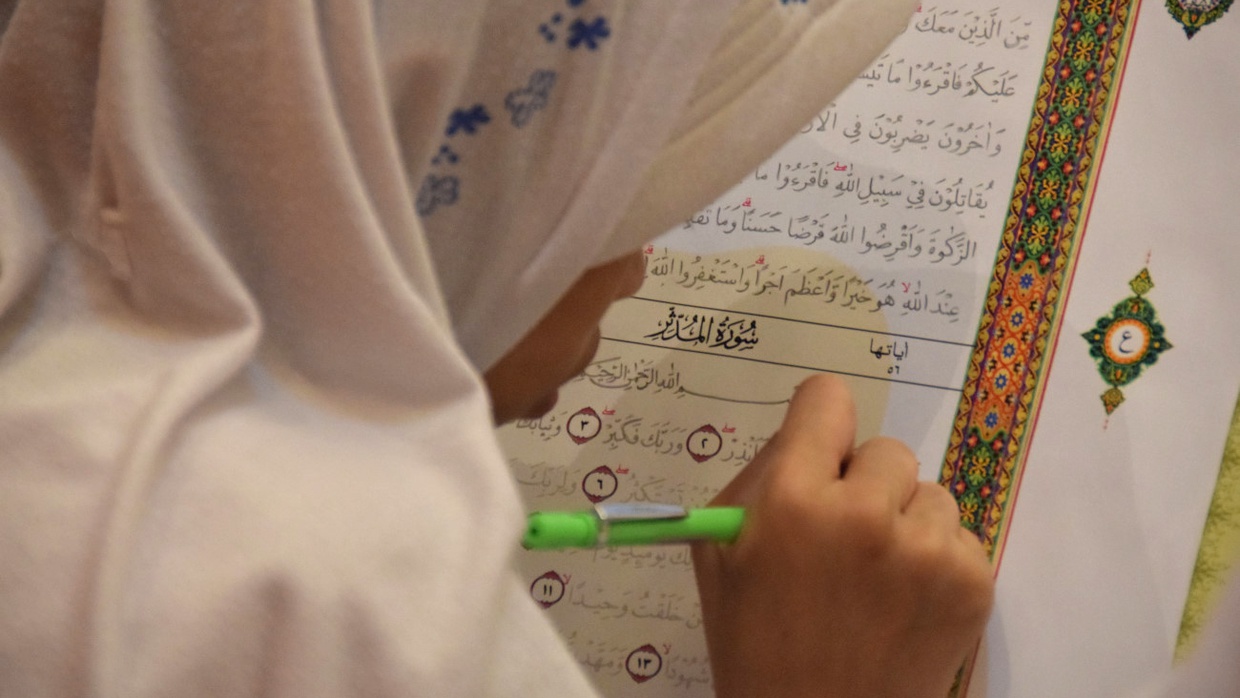 مِّنَ الَّذِيْنَ مَعَكَ
عَلَيْكُمْ فَاقْرَءُوْا مَا تَيَسَّ
وَاٰخَرُوْنَ يَضْرِبُوْنَ فِي الْاَرْ
يُقَاتِلُوْنَ فِيْ سَبِيْلِ اللّٰهِ ۖ فَاقْرَءُوْا مَا
الزَّكٰوةَ وَاَقْرِضُوا اللّٰهَ قَرْضًا حَسَنًا ۗ وَمَا تُقَدِّ
عِنْدَ اللّٰهِ هُوَ خَيْرًا وَّاَعْظَمَ اَجْرًا ۗ وَاسْتَغْفِرُوا اللّٰهَ ۗ
سُوْرَةُ المُدَّثِّرِ
اٰياتها
٥٦
ع
اللّٰهِ الرَّحْمٰنِ الرَّحِيْمِ
فَاَنْذِرْ ۖ ٢ وَرَبَّكَ فَكَبِّرْ ۖ ٣ وَثِيَابَكَ
تَسْتَكْثِرُ ۖ ٦ وَلِرَبِّكَ
يَوْمَىِٕذٍ يَّوْمٌ
خَلَقْتُ وَحِيْدًا ۙ ١١
شُهُوْدًا ۙ ١٣ وَّمَهَّدْ